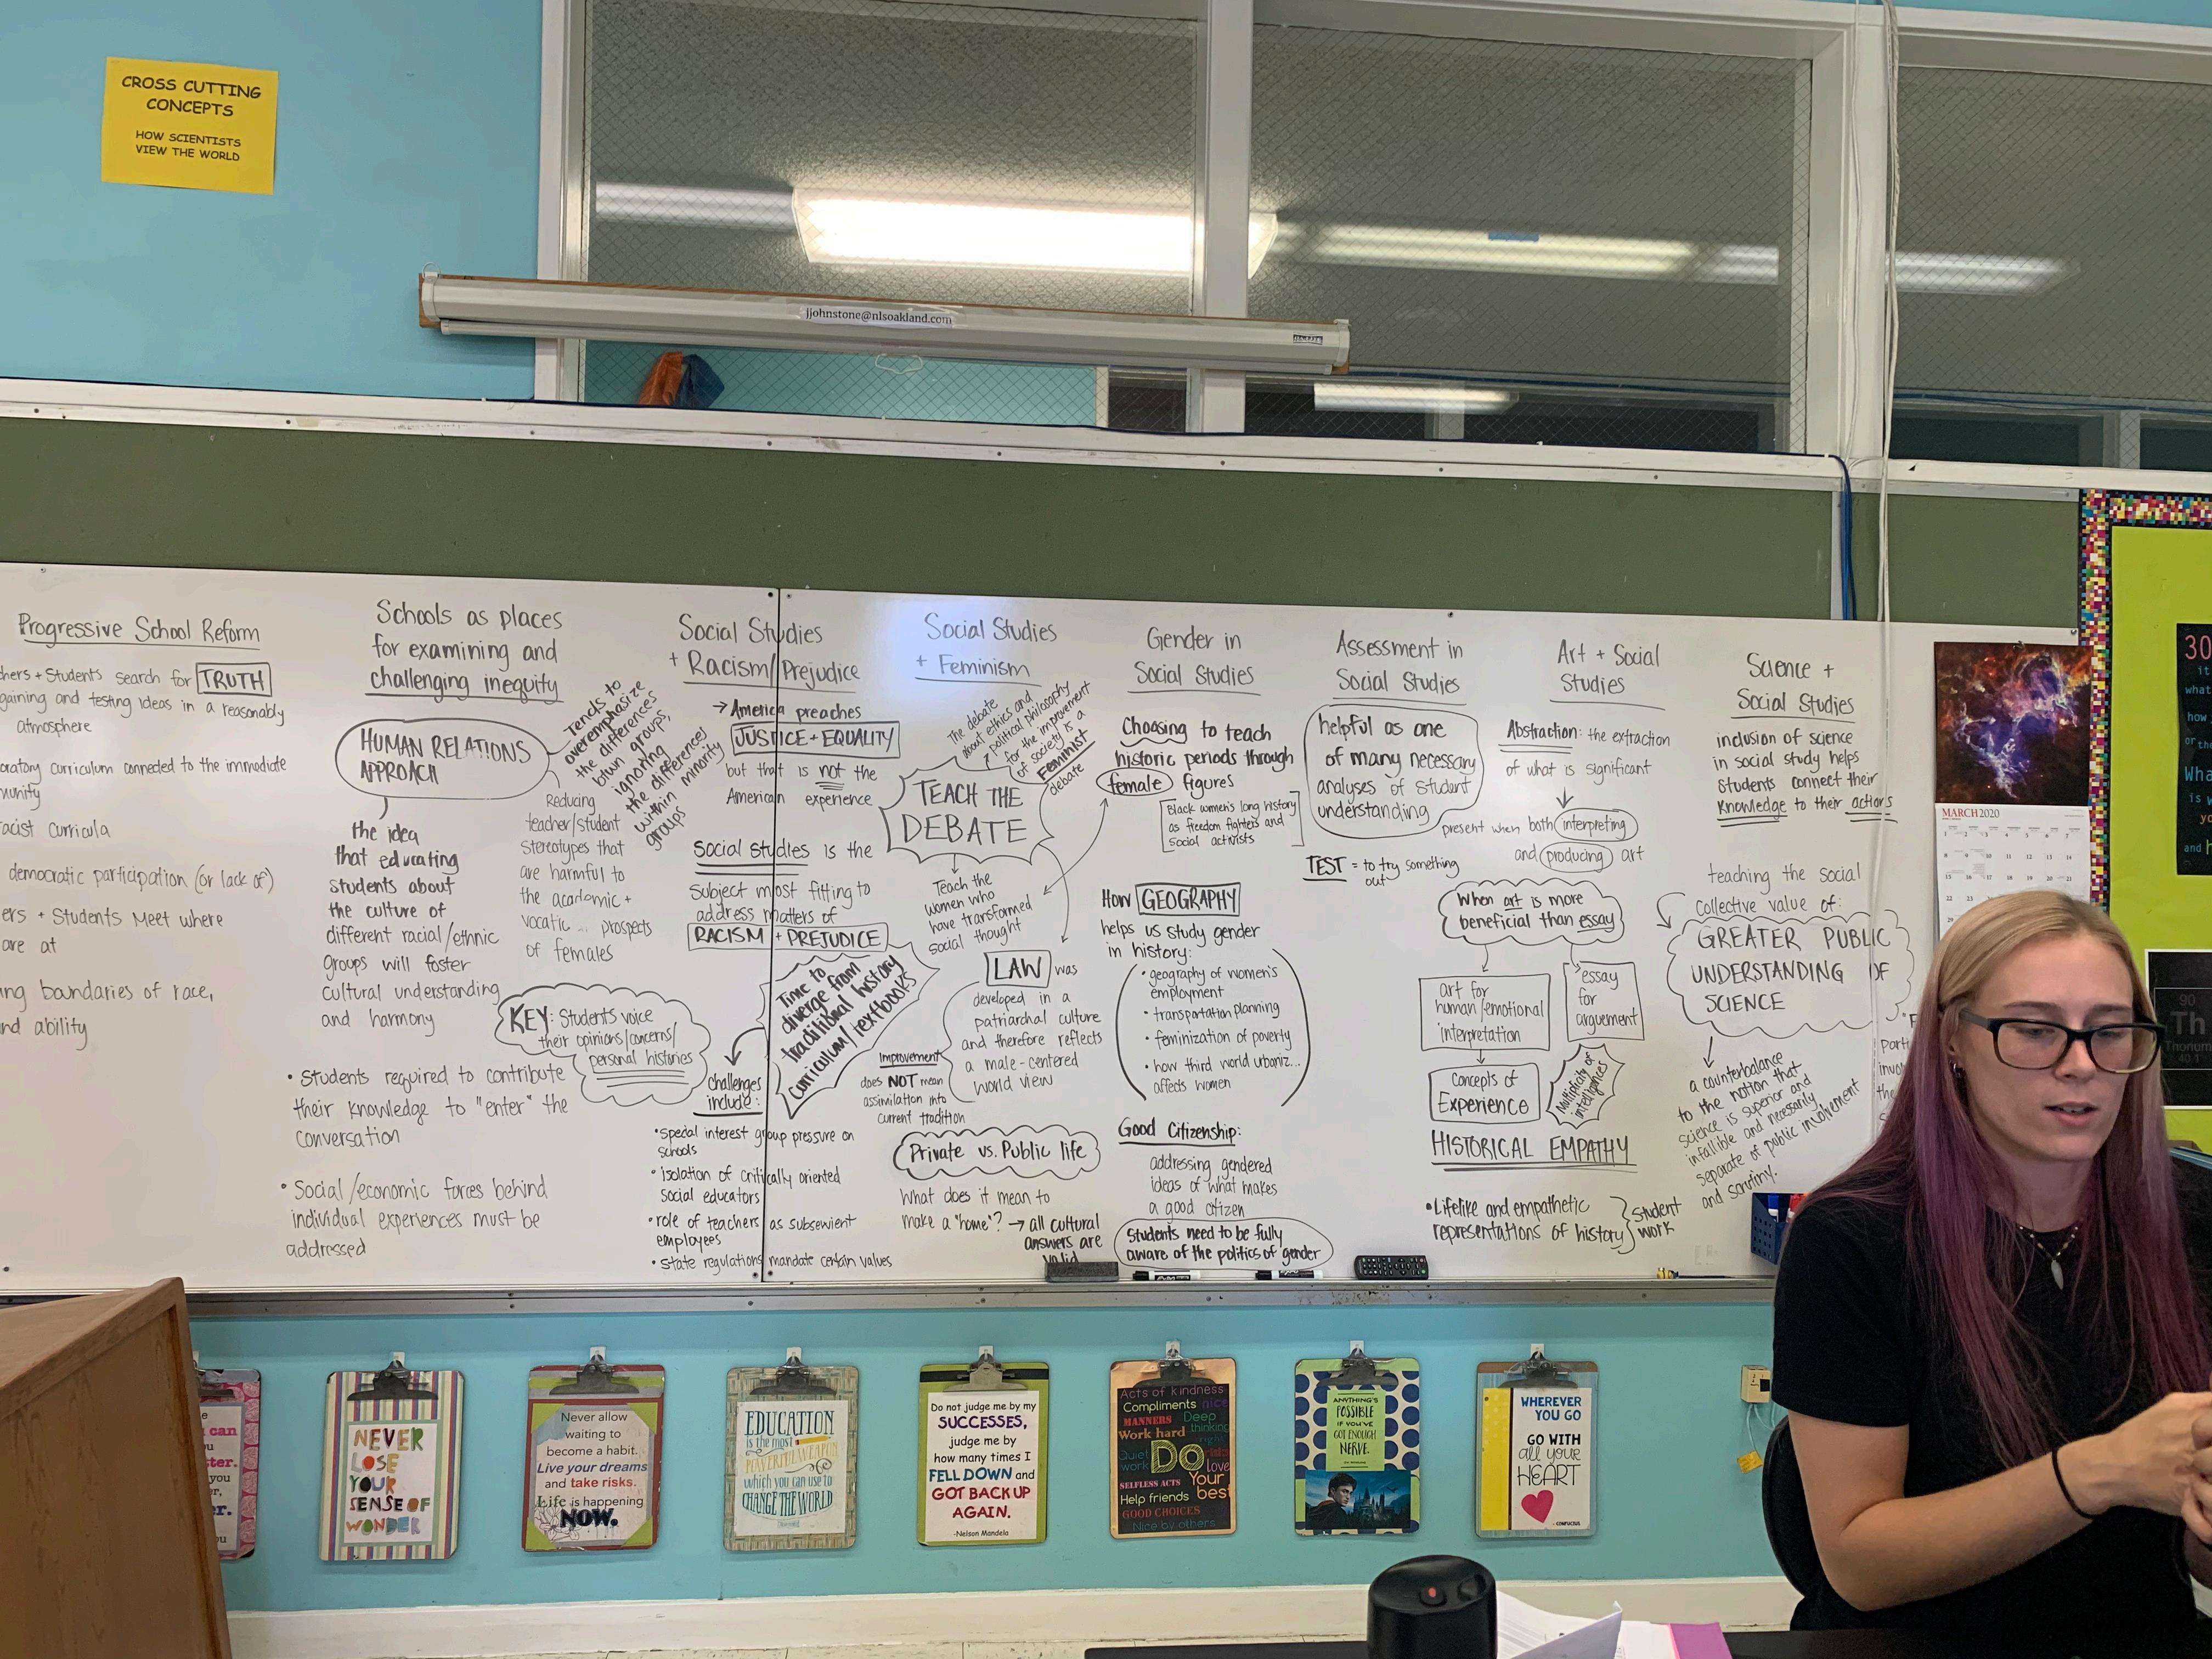 CROSS CUTTING
CONCEPTS
HOW SCIENTISTS
VIEW THE WORLD
jjohnstone@nlsoakland.com
Progressive School Reform
+ Students search for TRUTH
gaining and testing ideas in a reasonably
atmosphere
curriculum conneded to the immediate
curricula
democratic participation (or lack of)
+ Students Meet where
are at
boundaries of race,
ability
Schools as places
for examining and
challenging inequity
HUMAN RELATIONS
APPROACH
the idea
that educating
students about
the culture of
different racial/ethnic
groups will foster
cultural understanding
and harmony
Tends to
overemphasize
the differences
btwn groups,
ignoring
the differences
within minority
groups
Reducing
teacher/student
Stereotypes that
are harmful to
the academic +
prospects
of females
KEY: Students voice
their opinions/concerns/
personal histories
• Students required to contribute
their knowledge to "enter" the
conversation
• Social/economic forces behind
individual experiences must be
addressed
Social Studies
+ Racism/Prejudice
→ America preaches
JUSTICE + EQUALITY
but that is not the
American experience
Social studies is the
subject most fitting to
address matters of
RACISM + PREJUDICE
Time to
diverge from
traditional history
curriculum/textbooks
challenges
include:
• Special interest group pressure on
schools
• isolation of critically oriented
social educators
• role of teachers as subsewient
employees
• State regulations mandate certain values
Social Studies
+ Feminism
The debate
about ethics and
political philosophy
for the improvement
of society is a
Feminist
debate
TEACH THE
DEBATE
Teach the
women who
have transformed
social thought
LAW was
developed in a
patriarchal culture
and therefore reflects
a male-centered
world view
Improvement
does NOT mean
assimilation into
current tradition
Private vs. Public life
What does it mean to
make a "home"? → all cultural
answers are
valid
Gender in
Social Studies
Choosing to teach
historic periods through
female figures
Black women's long history
as freedom fighters and
social activists
How GEOGRAPHY
helps us study gender
in history:
• geography of women's
employment
• transportation planning
• feminization of poverty
• how third world urbaniz...
affects women
Good Citizenship:
addressing gendered
ideas of what makes
a good citizen
Students need to be fully
aware of the politics of gender
Assessment in
Social Studies
helpful as one
of many necessary
analyses of student
understanding
TEST = to try something
out
Art + Social
Studies
Abstraction: the extraction
of what is significant
present when both interpreting
and producing art
When art is more
beneficial than essay
art for
human/emotional
interpretation
essay
for
arguement
Concepts of
Experience
Multiplicity of
intelligences
HISTORICAL EMPATHY
• Lifelike and empathetic
representations of history
Student
work
Science +
Social Studies
inclusion of science
in social study helps
Students connect their
Knowledge to their actions
teaching the social
collective value of:
GREATER PUBLIC
UNDERSTANDING OF
SCIENCE
a counterbalance
to the notion that
science is superior and
infallible and necessarily
separate of public involvement
and scrutiny.
MARCH 2020
30
it
what
how
or the
Wha
is
yo
and
90
Th
Thorium
can
NEVER
LOSE
YOUR
SENSE OF
WONDER
Never allow
waiting to
become a habit.
Live your dreams
and take risks.
Life is happening
NOW.
EDUCATION
is the most
POWERFUL WEAPON
which you can use to
CHANGE THE WORLD
Do not judge me by my
SUCCESSES,
judge me by
how many times I
FELL DOWN and
GOT BACK UP
AGAIN.
-Nelson Mandela
Acts of kindness
Compliments nice
MANNERS Deep
thinking
Work hard right
Quiet
work DO love
SELFLESS ACTS Your
Help friends best
GOOD CHOICES
Nice by others
ANYTHING'S
POSSIBLE
IF YOU'VE
GOT ENOUGH
NERVE.
WHEREVER
YOU GO
GO WITH
all YOUR
HEART
- CONFUCIUS